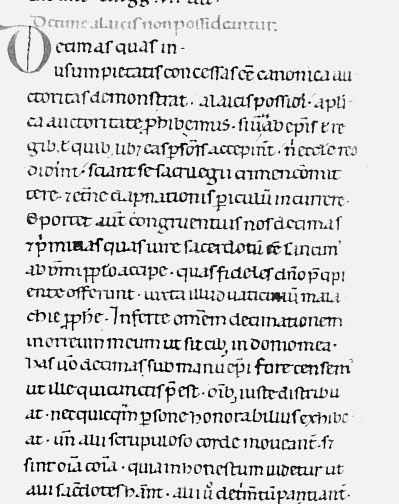 Decime a laicis non possideantur.
Decimas quas in
usum pietatis concessas eẽ canonica au
ctoritas demonstrat . a laicis possidi . apli
ca auctoritate ꝓhibemus . siũ ab ep̃is ł re
gib; ł quib; lib; eas ꝑsonis acceperint . ñ eccłe red
diderint . sciant se sacrilegii crimen cõmit
tere . ⁊ etñe dãpnationis ꝑiculũ incurrere .
Oportet aut̃ congruentius nos decimas
⁊ p̃mitias quas iure sacerdotũ eẽ sancim
ab om̃i ppło accipe . quas fideles dño p̃cipi
ente offerunt . iuxta illud vaticiniũ mala
chie ꝓphe . Inferte omẽm decimationem
in orreum meum ut sit cib; in domo mea .
has ũo decimas sub manu ep̃i fore censem
ut ille qui cunctis p̃est . oĩb; iuste distribu
at . nec quicq̃m ꝑsone honorabilius exhibe
at . uñ alii scrupuloso corde moueant̃ . s;
sint oĩa cõia . quia inhonestum uidetur ut
alii sacerdotes habeant . alii ũ detrim̃tũ patiant̃ .